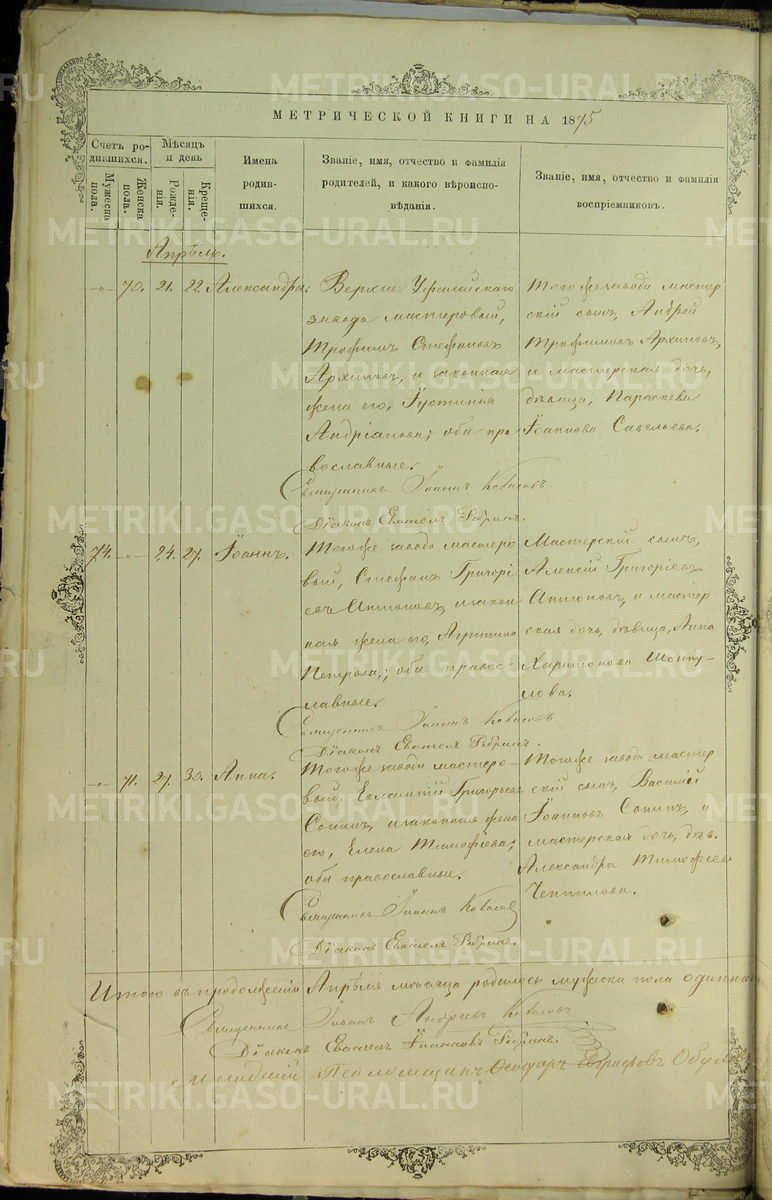 МЕТРИЧЕСКОЙ КНИГИ НА 1875
Счетъ родившихся.
Мужеска пола.
Женска пола.
Мѣсяцъ и день
Рожденія.
Крещенія.
Имена родившихся.
Званіе, имя, отчество и фамилія родителей, и какого вѣроисповѣданія.
Званіе, имя, отчество и фамилія воспріемниковъ.
Апрѣль.
-"- 70. 21. 22. Александра.
Верхне Уфалейскаго
завода мастеровый,
Трофимъ Стефановъ
Архиповъ, и законная
жена его, Іустинія
Андріанова; оба пра
вославные.
Священникъ Іоаннъ
Діаконъ Евгеній
Тогоже завода мастер
скій сынъ, Андрей
Трофимовъ Архиповъ,
и мастерская дочь,
дѣвица, Параскева
Іоаннова Савельева.
74. -"- 24. 27. Іоаннъ.
Тогоже завода мастеро
вый, Стефанъ Григорі
евъ Антоновъ, и закон
ная жена его, Агриппина
Петрова; оба правос-
лавные.
Священникъ Іоаннъ
Діаконъ
Мастерскій сынъ,
Алексій Григоріевъ
Антоновъ, и мастер
ская дочь, дѣвица, Анна
Харитонова
-"- 71. 27. 30. Анна.
Тогоже завода мастеро-
вый, Евлампій Григорьевъ
Сонинъ, и законная жена
его, Елена Тимофеева;
оба православные.
Священникъ Іоаннъ
Діаконъ
Тогоже завода мастер
скій сынъ, Василій
Іоанновъ Сонинъ, и
мастерская дочь, дѣв.
Александра Тимофеева
Итого въ продолженіи Апрѣля мѣсяца родилось мужеска пола
Священникъ Іоаннъ Андреевъ
Діаконъ Іоанновъ
METRIKI.GASO-URAL.RU